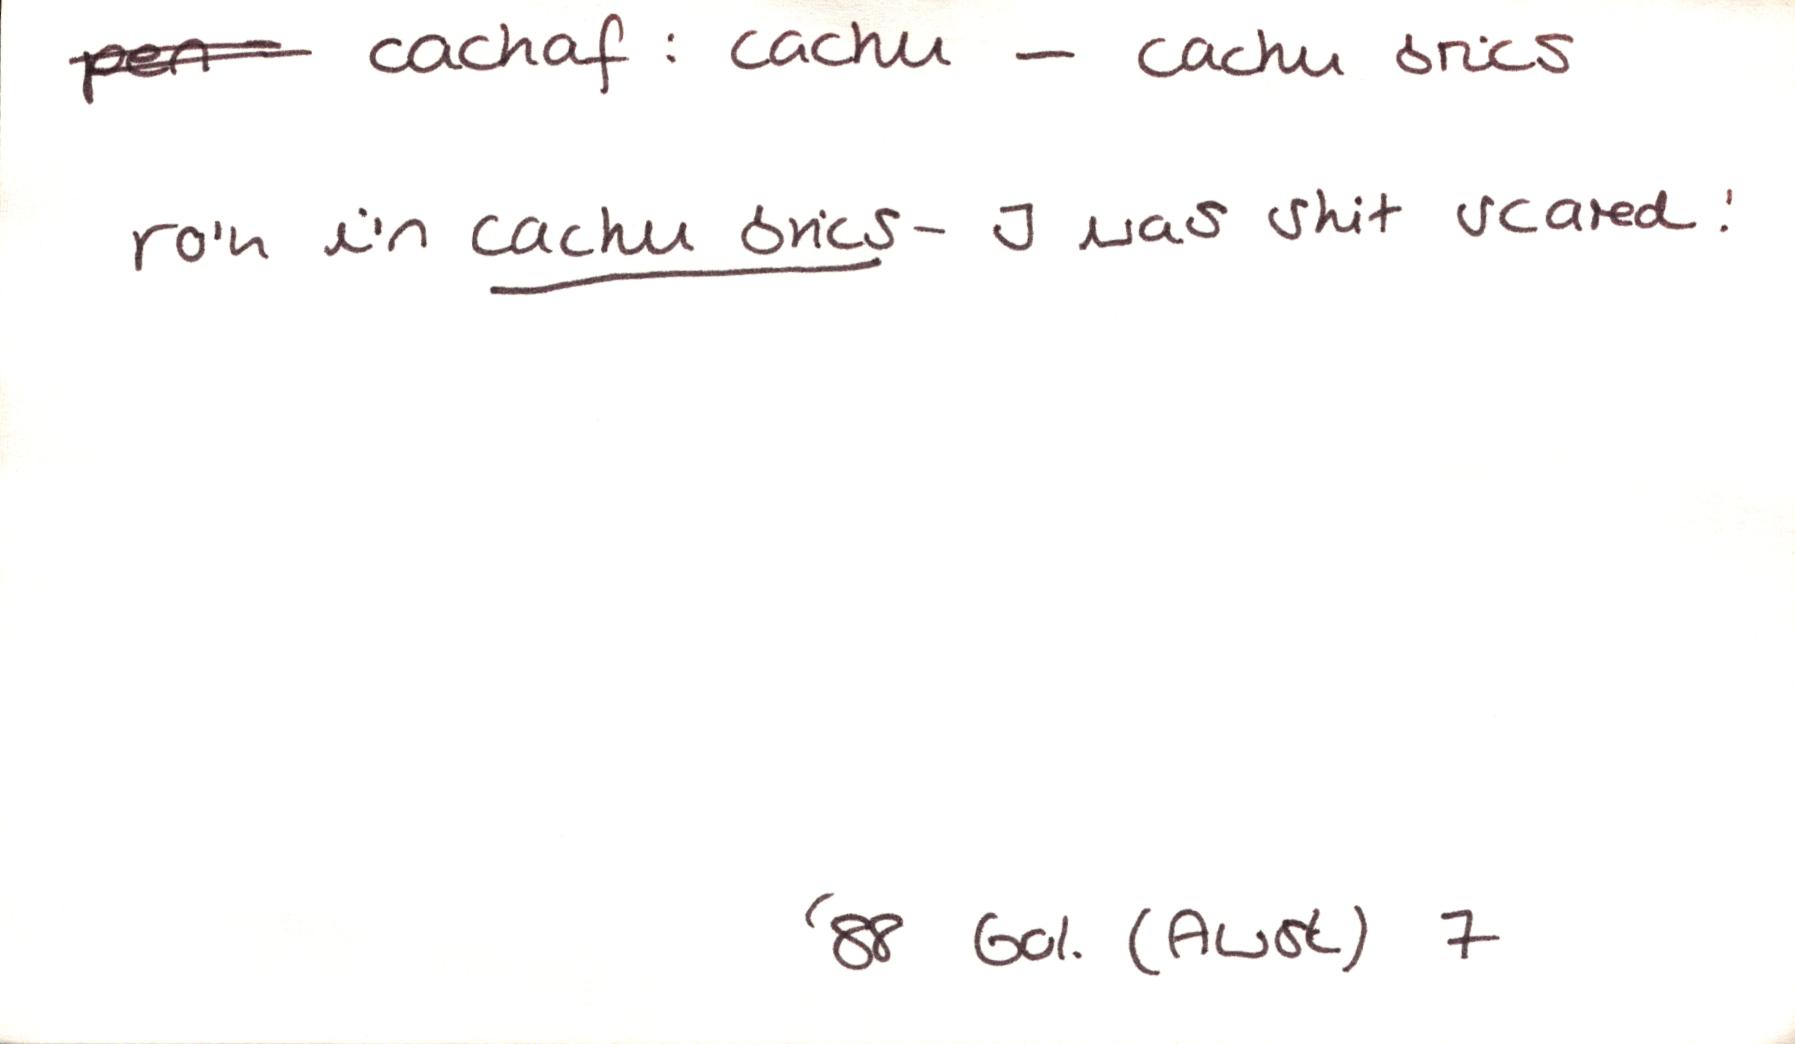 cachaf : cachu – cachu brics
ro'n i'n cachu brics – I was shit scared!
'88 Gol. (Awst) 7